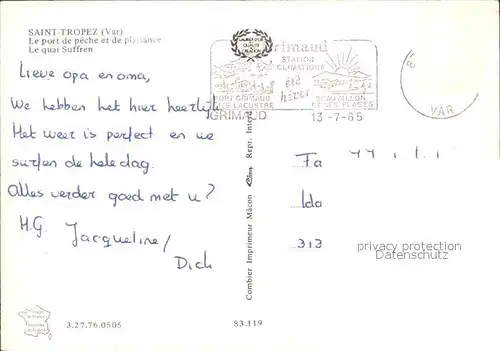 SAINT-TROPEZ (Var)
Le port de pêche et de plaisance
Le quai Suffren
Lieve opa en oma,
We hebben het hier heerlijk
Het weer is perfect en we
surfen de hele dag.
Alles verder goed met u?
H.G. Jacqueline/
Dick
Grimaud
STATION
CLIMATIQUE
ÉTÉ
HIVER
PORT GRIMAUD
CITE LACUSTRE
BEAUVALLON
ET SES PLAGES
GRIMAUD
13-7-85
VAR
Combier Imprimeur Mâcon
Repr. Interd.
Fa
Ida
313
privacy protection
DATABASE
3.27.76.0505
83.119